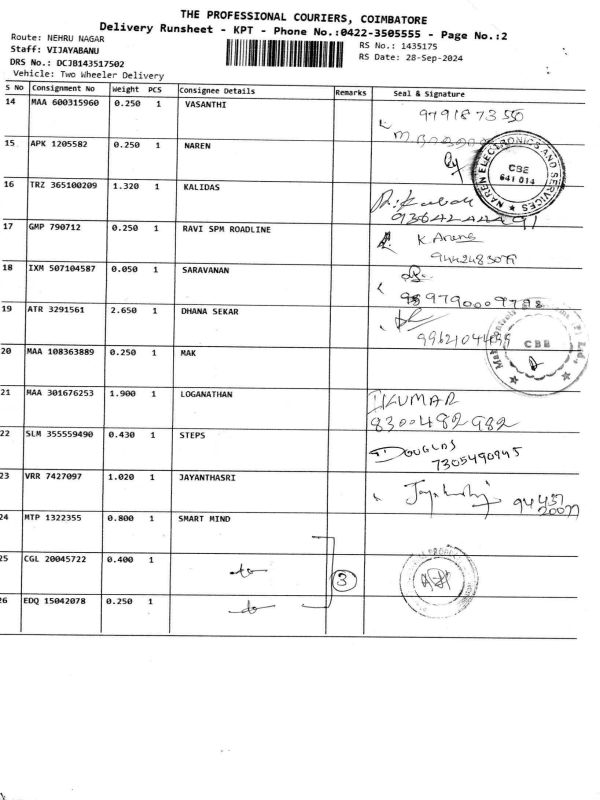 THE PROFESSIONAL COURIERS, COIMBATORE
Delivery Runsheet - KPT - Phone No.:0422-3505555 - Page No.:2
Route: NEHRU NAGAR
RS No.: 1435175
Staff: VIJAYABANU
RS Date: 28-Sep-2024
DRS No.: DCJB143517502
Vehicle: Two Wheeler Delivery
S No Consignment No Weight PCS Consignee Details Remarks Seal & Signature
14 MAA 600315960 0.250 1 VASANTHI
9791873550
15 APK 1205582 0.250 1 NAREN
NAREN ELECTRONICS AND SERVICES
CBE
641 014
16 TRZ 365100209 1.320 1 KALIDAS
17 GMP 790712 0.250 1 RAVI SPM ROADLINE
18 IXM 507104587 0.050 1 SARAVANAN
19 ATR 3291561 2.650 1 DHANA SEKAR
CBE
20 MAA 108363889 0.250 1 MAK
21 MAA 301676253 1.900 1 LOGANATHAN
KUMAR
8300482982
22 SLM 355559490 0.430 1 STEPS
DOUGLAS
7305490945
23 VRR 7427097 1.020 1 JAYANTHASRI
24 MTP 1322355 0.800 1 SMART MIND
25 CGL 20045722 0.400 1 do
3
26 EDQ 15042078 0.250 1 do